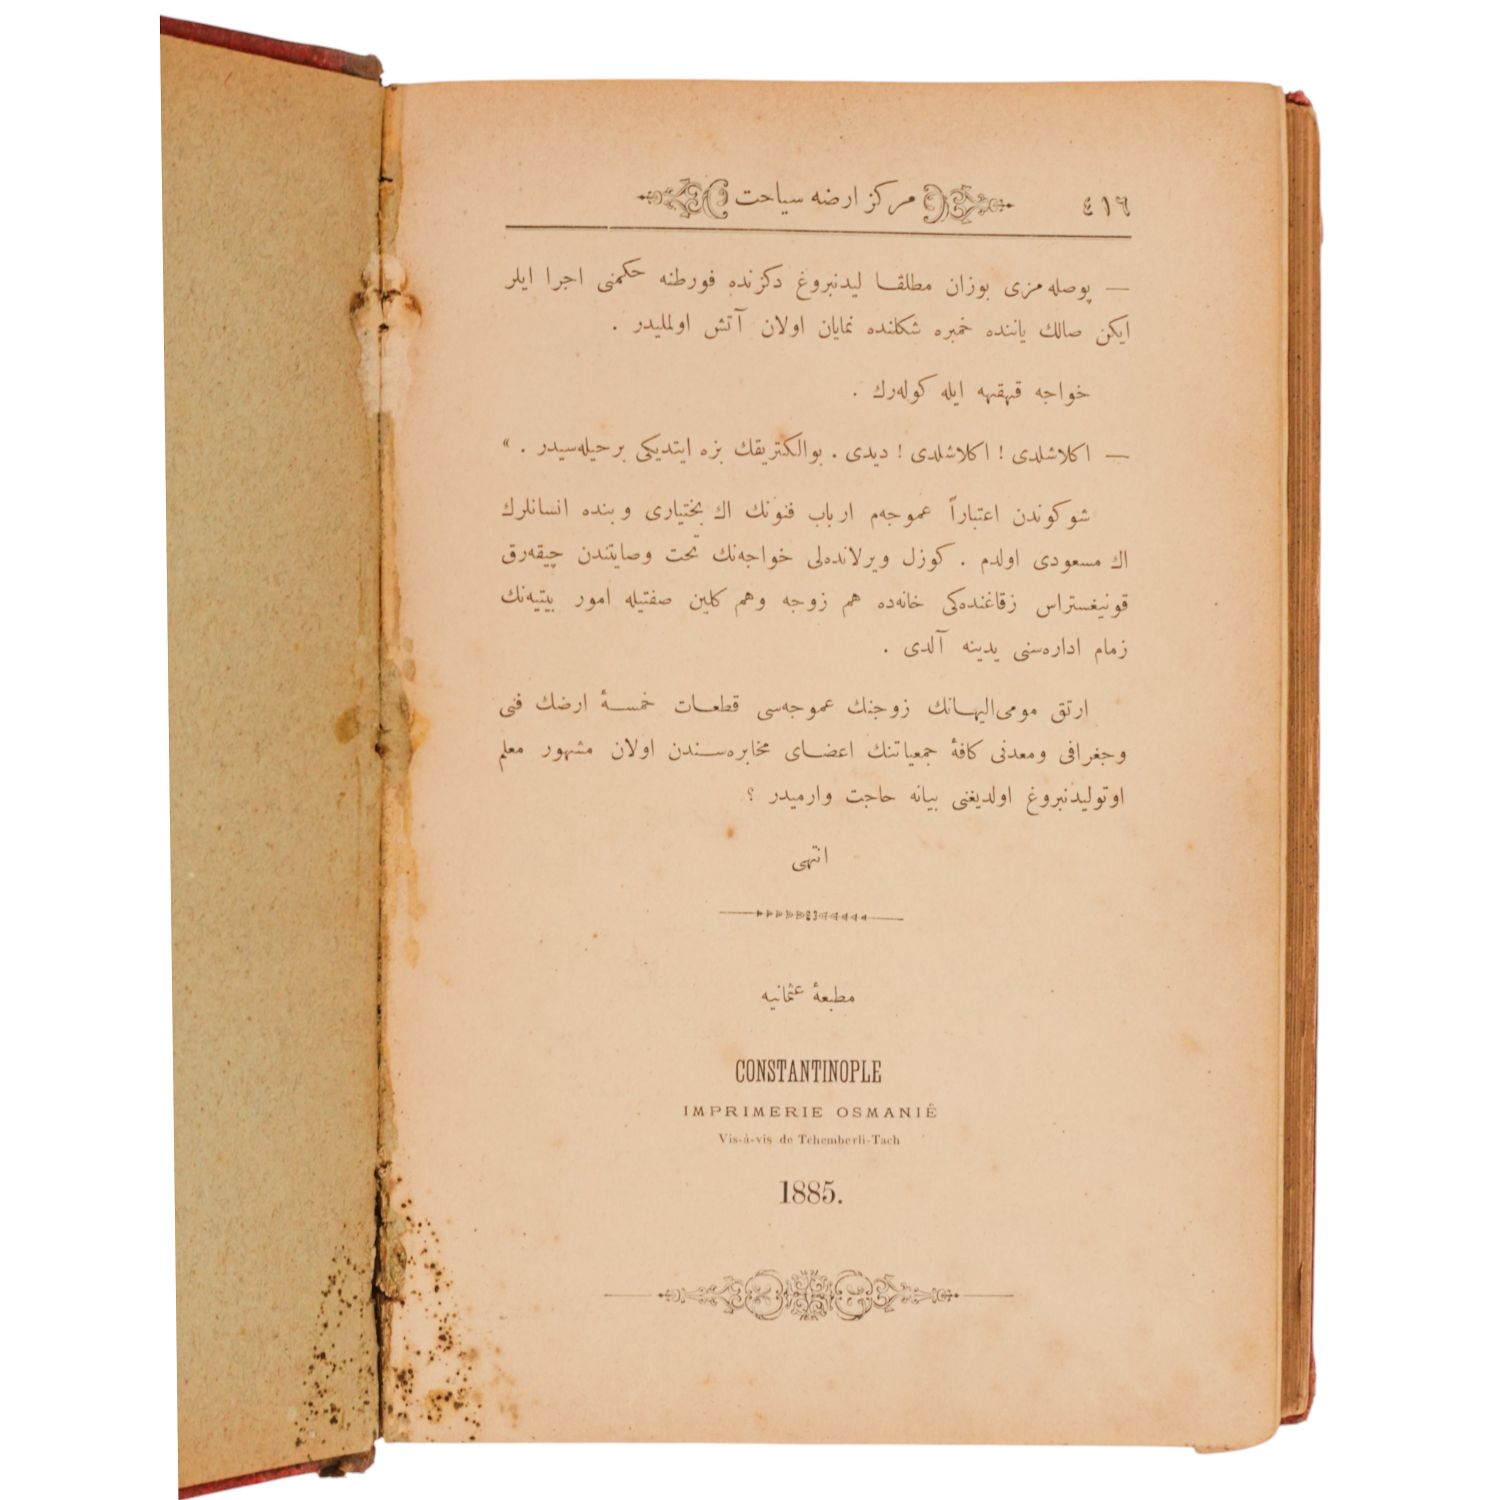 ٤١٦
مركز ارضه سياحت
— پوصله‌مزى بوزان مطلقا ليدنبروغ دكزنده فورطنه حكمنى اجرا ايلر
ايكن صالك ياننده خمبره شكلنده نمايان اولان آتش اولمليدر .
خواجه قهقهه ايله كوله‌رك .
— اكلاشلدى ! اكلاشلدى ! ديدى . بوالكتريقك بزه ايتديكى برحيله‌سيدر . »
شوكوندن اعتباراً عموجه‌م ارباب فنونك اك بختيارى وبنده انسانلرك
اك مسعودى اولدم . كوزل ويرلانده‌لى خواجه‌نك تحت وصايتندن چيقه‌رق
قونيغستراس زقاغنده‌كى خانه‌ده هم زوجه وهم كلين صفتيله امور بيتيه‌نك
زمام اداره‌سنى يدينه آلدى .
ارتق مومى‌اليهانك زوجنك عموجه‌سى قطعات خمسهٔ ارضك فنى
وجغرافى ومعدنى كافهٔ جمعياتنك اعضاى مخابره‌سندن اولان مشهور معلم
اوتوليدنبروغ اولديغنى بيانه حاجت وارميدر ؟
انتهى
مطبعهٔ عثمانيه
CONSTANTINOPLE
IMPRIMERIE OSMANIÊ
Vis-à-vis de Tchemberli-Tach
1885.